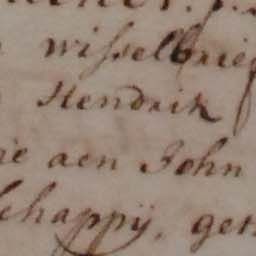 wisselbrief
Hendrik
aen John
schappÿ, get